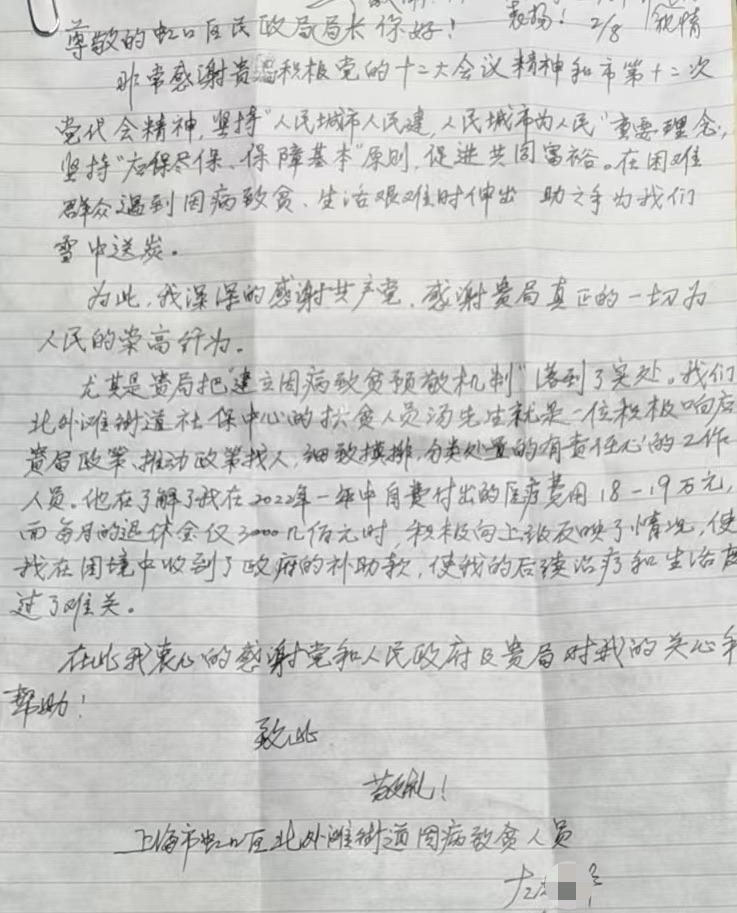 表扬! 2/8
尊敬的虹口区民政局局长你好!
非常感谢贵局积极党的十二大会议精神和市第十二次
党代会精神,坚持"人民城市人民建,人民城市为人民"重要理念,
坚持"应保尽保、保障基本"原则,促进共同富裕。在困难
群众遇到因病致贫、生活艰难时伸出 助之手为我们
雪中送炭。
为此,我深深的感谢共产党,感谢贵局真正的一切为
人民的崇高行为。
尤其是贵局把"建立因病致贫预警机制"落到了实处。我们
北外滩街道社保中心的扶贫人员汤先生就是一位积极响应
贵局政策、推动政策找人,细致摸排,分类处置的有责任心的工作
人员。他在了解了我在2022年一年中自费付出的医疗费用18-19万元,
而每月的退休金仅3000几佰元时,积极向上级反映了情况,使
我在困境中收到了政府的补助款,使我的后续治疗和生活度
过了难关。
在此我衷心的感谢党和人民政府及贵局对我的关心和
帮助!
致此
敬礼!
上海市虹口区北外滩街道因病致贫人员